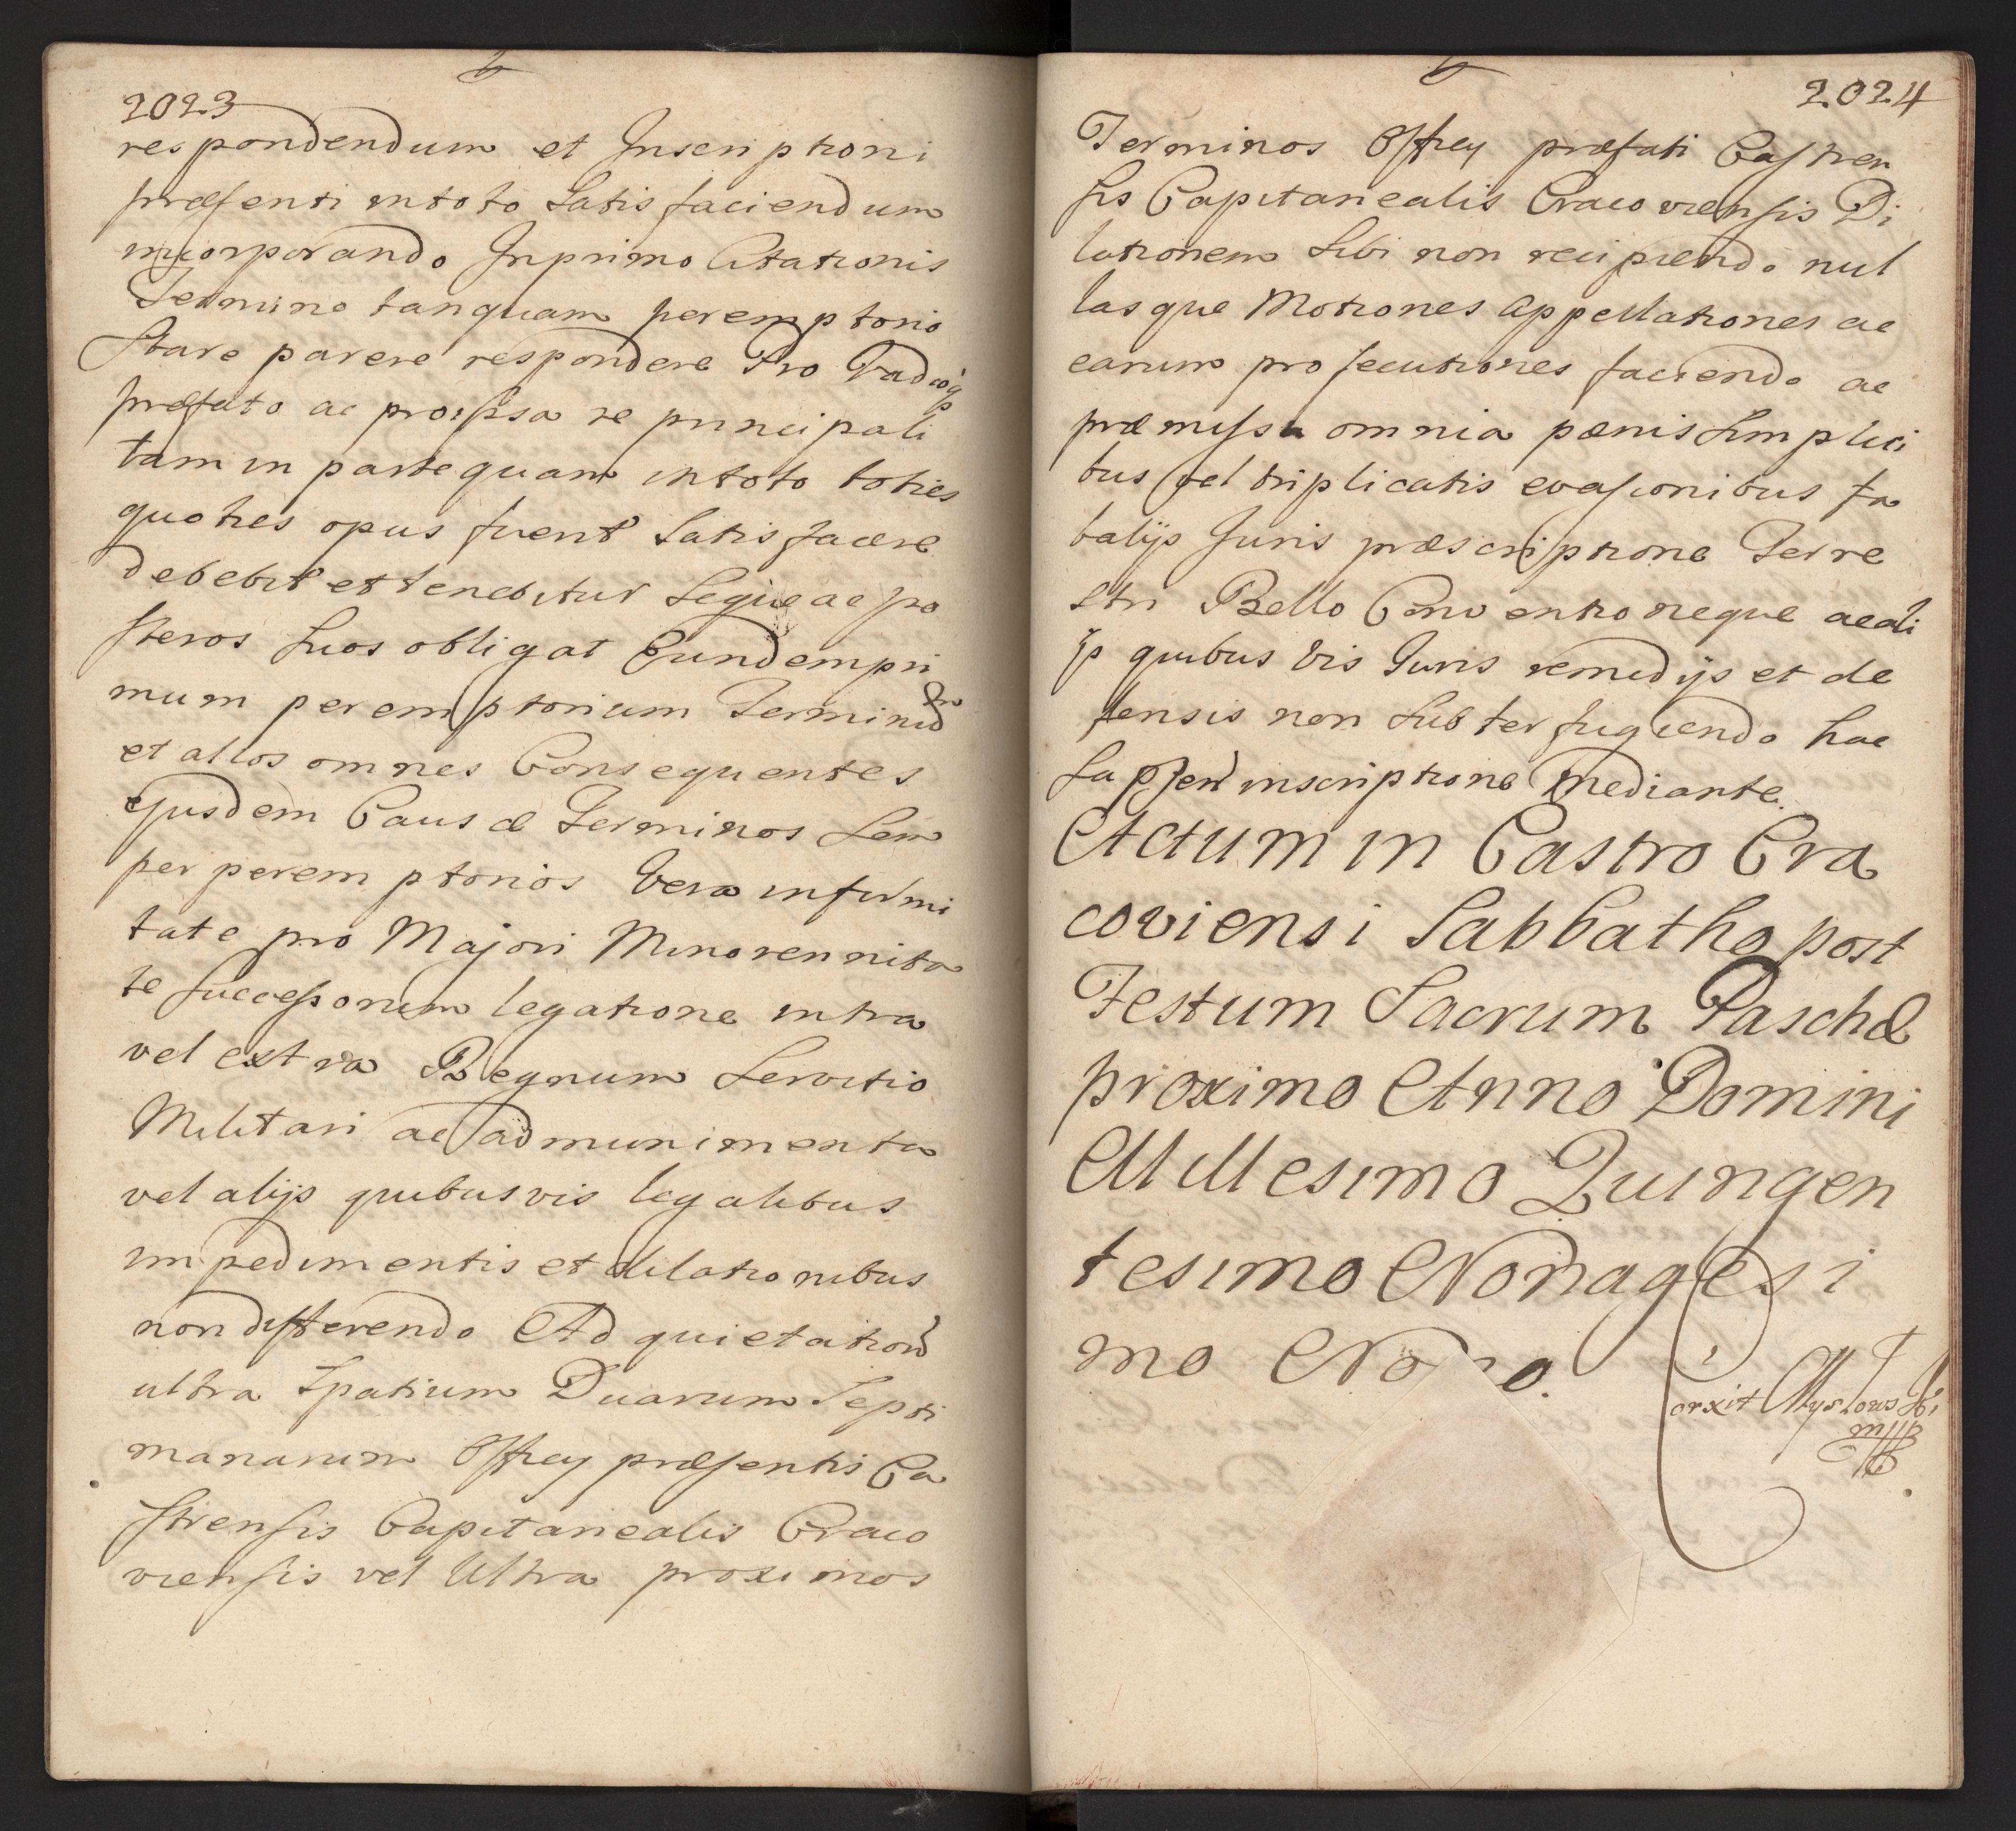 2023
respondendum et Inscriptioni
præsenti intoto Satis faciendum
incorporando Inprimo Citationis
Termino tanquam peremptorio
Stare parere respondere Pro Vadioq
præfato ac proipsa re principali
tam in parte quam intoto toties
quoties opus fuerit Satis facere
debebit et tenebitur Seque ac po
steros Suos obligat Eundempri
mum peremptorium Terminū
et alios omnes Consequentes
ejusdem Causæ Terminos Sem
per peremptorios Vera infirmi
tate pro Majori Minorennita
te Successorum legatione intra
vel extra Regnum Servitio
Militari ac ad munimenta
vel alijs quibusvis legalibus
impedimentis et dilationibus
non differendo Ad quietation̄
ultra Spatium Duarum Septi
manarum Offtey præsentis Ca
strensis Capitanealis Craco
viensis vel Ultra proximos
2024
Terminos Offtey præfati Castren
sis Capitanealis Cracoviensis Di
lationem Sibi non recipiendo nul
lasque Motiones Appellationes ac
earum prosecutiones faciendo ac
præmissa omnia pænis Simplici
bus vel triplicatis evasionibus fa
talijs Juris præscriptione Terre
stri Bello Conventioneque ac ali
js quibus vis Juris remedijs et de
fensis non Subterfugiendo hac
Sa inscriptione mediante.
Actum in Castro Cra
coviensi Sabbatho post
Festum Sacrum Paschæ
proximo Anno Domini
Millesimo Quingen
tesimo Nonagesi
mo No o.